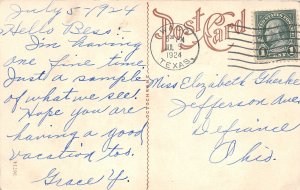 July 5-1924
Hello Bess:-
I'm having
one fine time.
Just a sample
of what we see!
Hope you are
having a good
vacation too.
Grace Y.
Post Card
JUL
1924
TEXAS
1
Miss Elizabeth
Jefferson Ave
Defiance
Ohio.